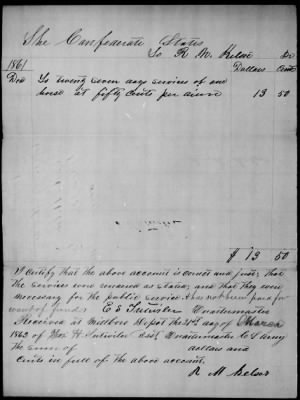 The Confederate States
To R. M. Kelso Dr
1861 Dollars Cents
Dec To twenty seven days services of one
horse at fifty cents per diem 13 50
$ 13 50
I certify that the above account is correct and just; that
the services were rendered as stated; and that they were
necessary for the public service. It has not been paid for
want of funds. Quartermaster
Received at Depot the day of March
1862 of Thos. H. Asst. Quartermaster C S Army
the sum of dollars and
cents in full of the above account.
R M Kelso